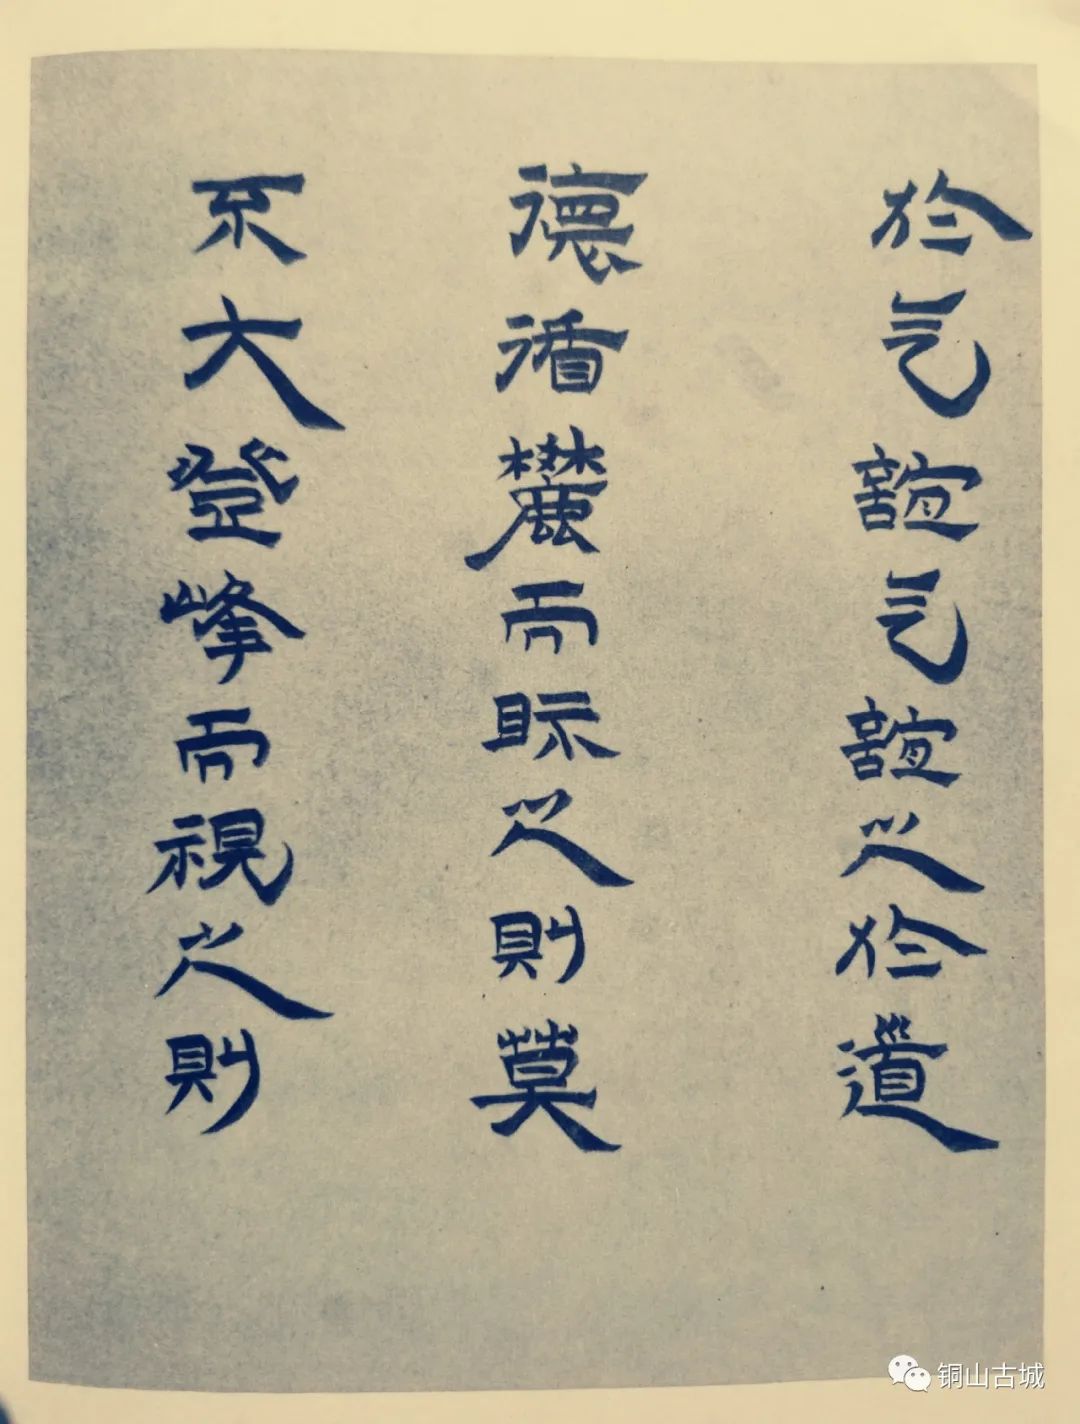 於气誼气誼之於道
德循麓而眎之則莫
不大登峰而視之則
铜山古城